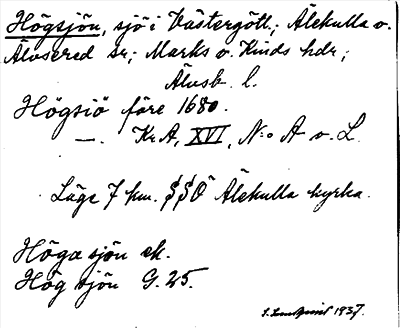 Högsjön, sjö i Västergötl.; Älekulla o.
Älvsered sr; Marks o. Kinds hdr;
Älvsb. l.
Högsiö före 1680.
—. KrA, XVI, N:o A o. L
Läge 7 km. SSÖ Älekulla kyrka.
Höga sjön ek.
Hög sjön G. 25.
S. Lundquist 1937.